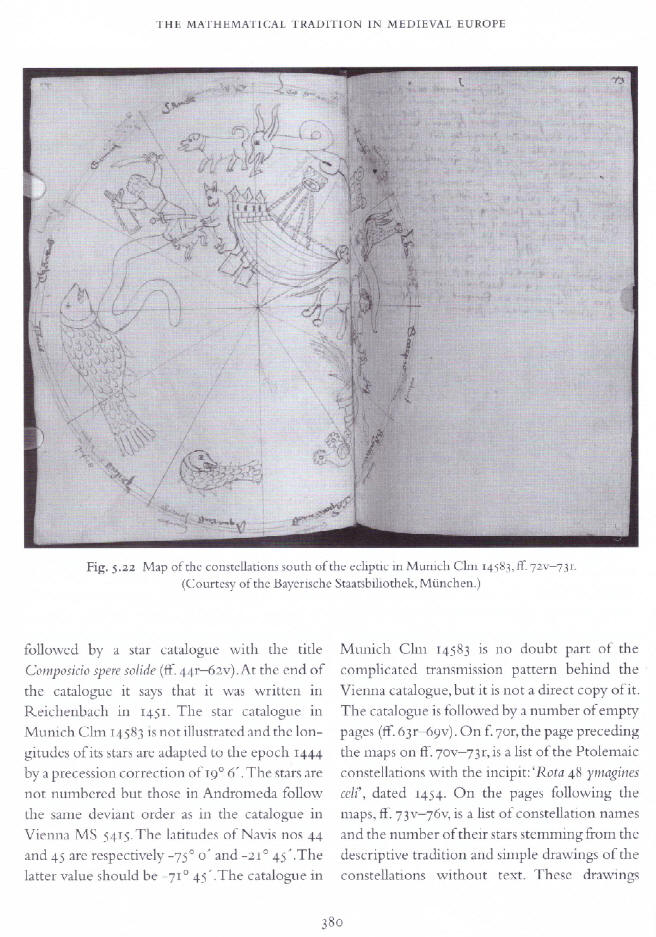 THE MATHEMATICAL TRADITION IN MEDIEVAL EUROPE
73
Fig. 5.22 Map of the constellations south of the ecliptic in Munich Clm 14583, ff. 72v–73r.
(Courtesy of the Bayerische Staatsbibliothek, München.)
followed by a star catalogue with the title
Composicio spere solide (ff. 44r–62v). At the end of
the catalogue it says that it was written in
Reichenbach in 1451. The star catalogue in
Munich Clm 14583 is not illustrated and the lon-
gitudes of its stars are adapted to the epoch 1444
by a precession correction of 19° 6´. The stars are
not numbered but those in Andromeda follow
the same deviant order as in the catalogue in
Vienna MS 5415. The latitudes of Navis nos 44
and 45 are respectively -75° 0´ and -21° 45´. The
latter value should be -71° 45´. The catalogue in
Munich Clm 14583 is no doubt part of the
complicated transmission pattern behind the
Vienna catalogue, but it is not a direct copy of it.
The catalogue is followed by a number of empty
pages (ff. 63r–69v). On f. 70r, the page preceding
the maps on ff. 70v–73r, is a list of the Ptolemaic
constellations with the incipit: 'Rota 48 ymagines
celi', dated 1454. On the pages following the
maps, ff. 73v–76v, is a list of constellation names
and the number of their stars stemming from the
descriptive tradition and simple drawings of the
constellations without text. These drawings
380